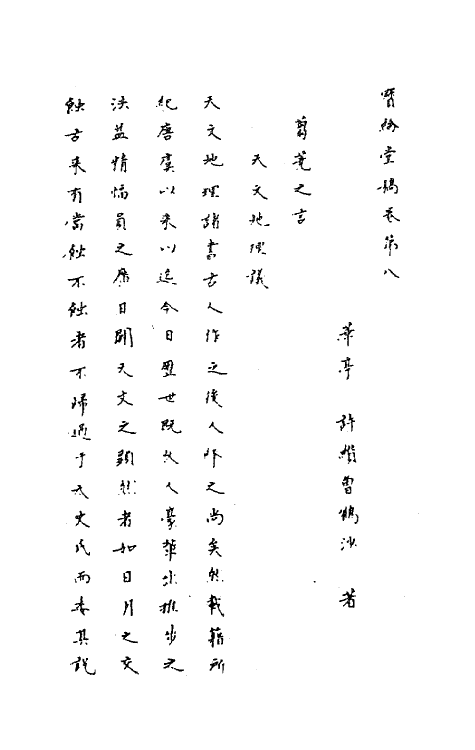 寶綸堂稿卷第八
華亭 許纘曾鶴沙 著
芻蕘之言
天文地理議
天文地理諸書古人作之後人附之尚矣然載籍所
紀唐虞以來以迄今日歷世既久人豪輩出推步之
法益精幅員之廣日闢天文之顯然者如日月之交
蝕古來有當蝕不蝕者不歸過于天文氏而委其說